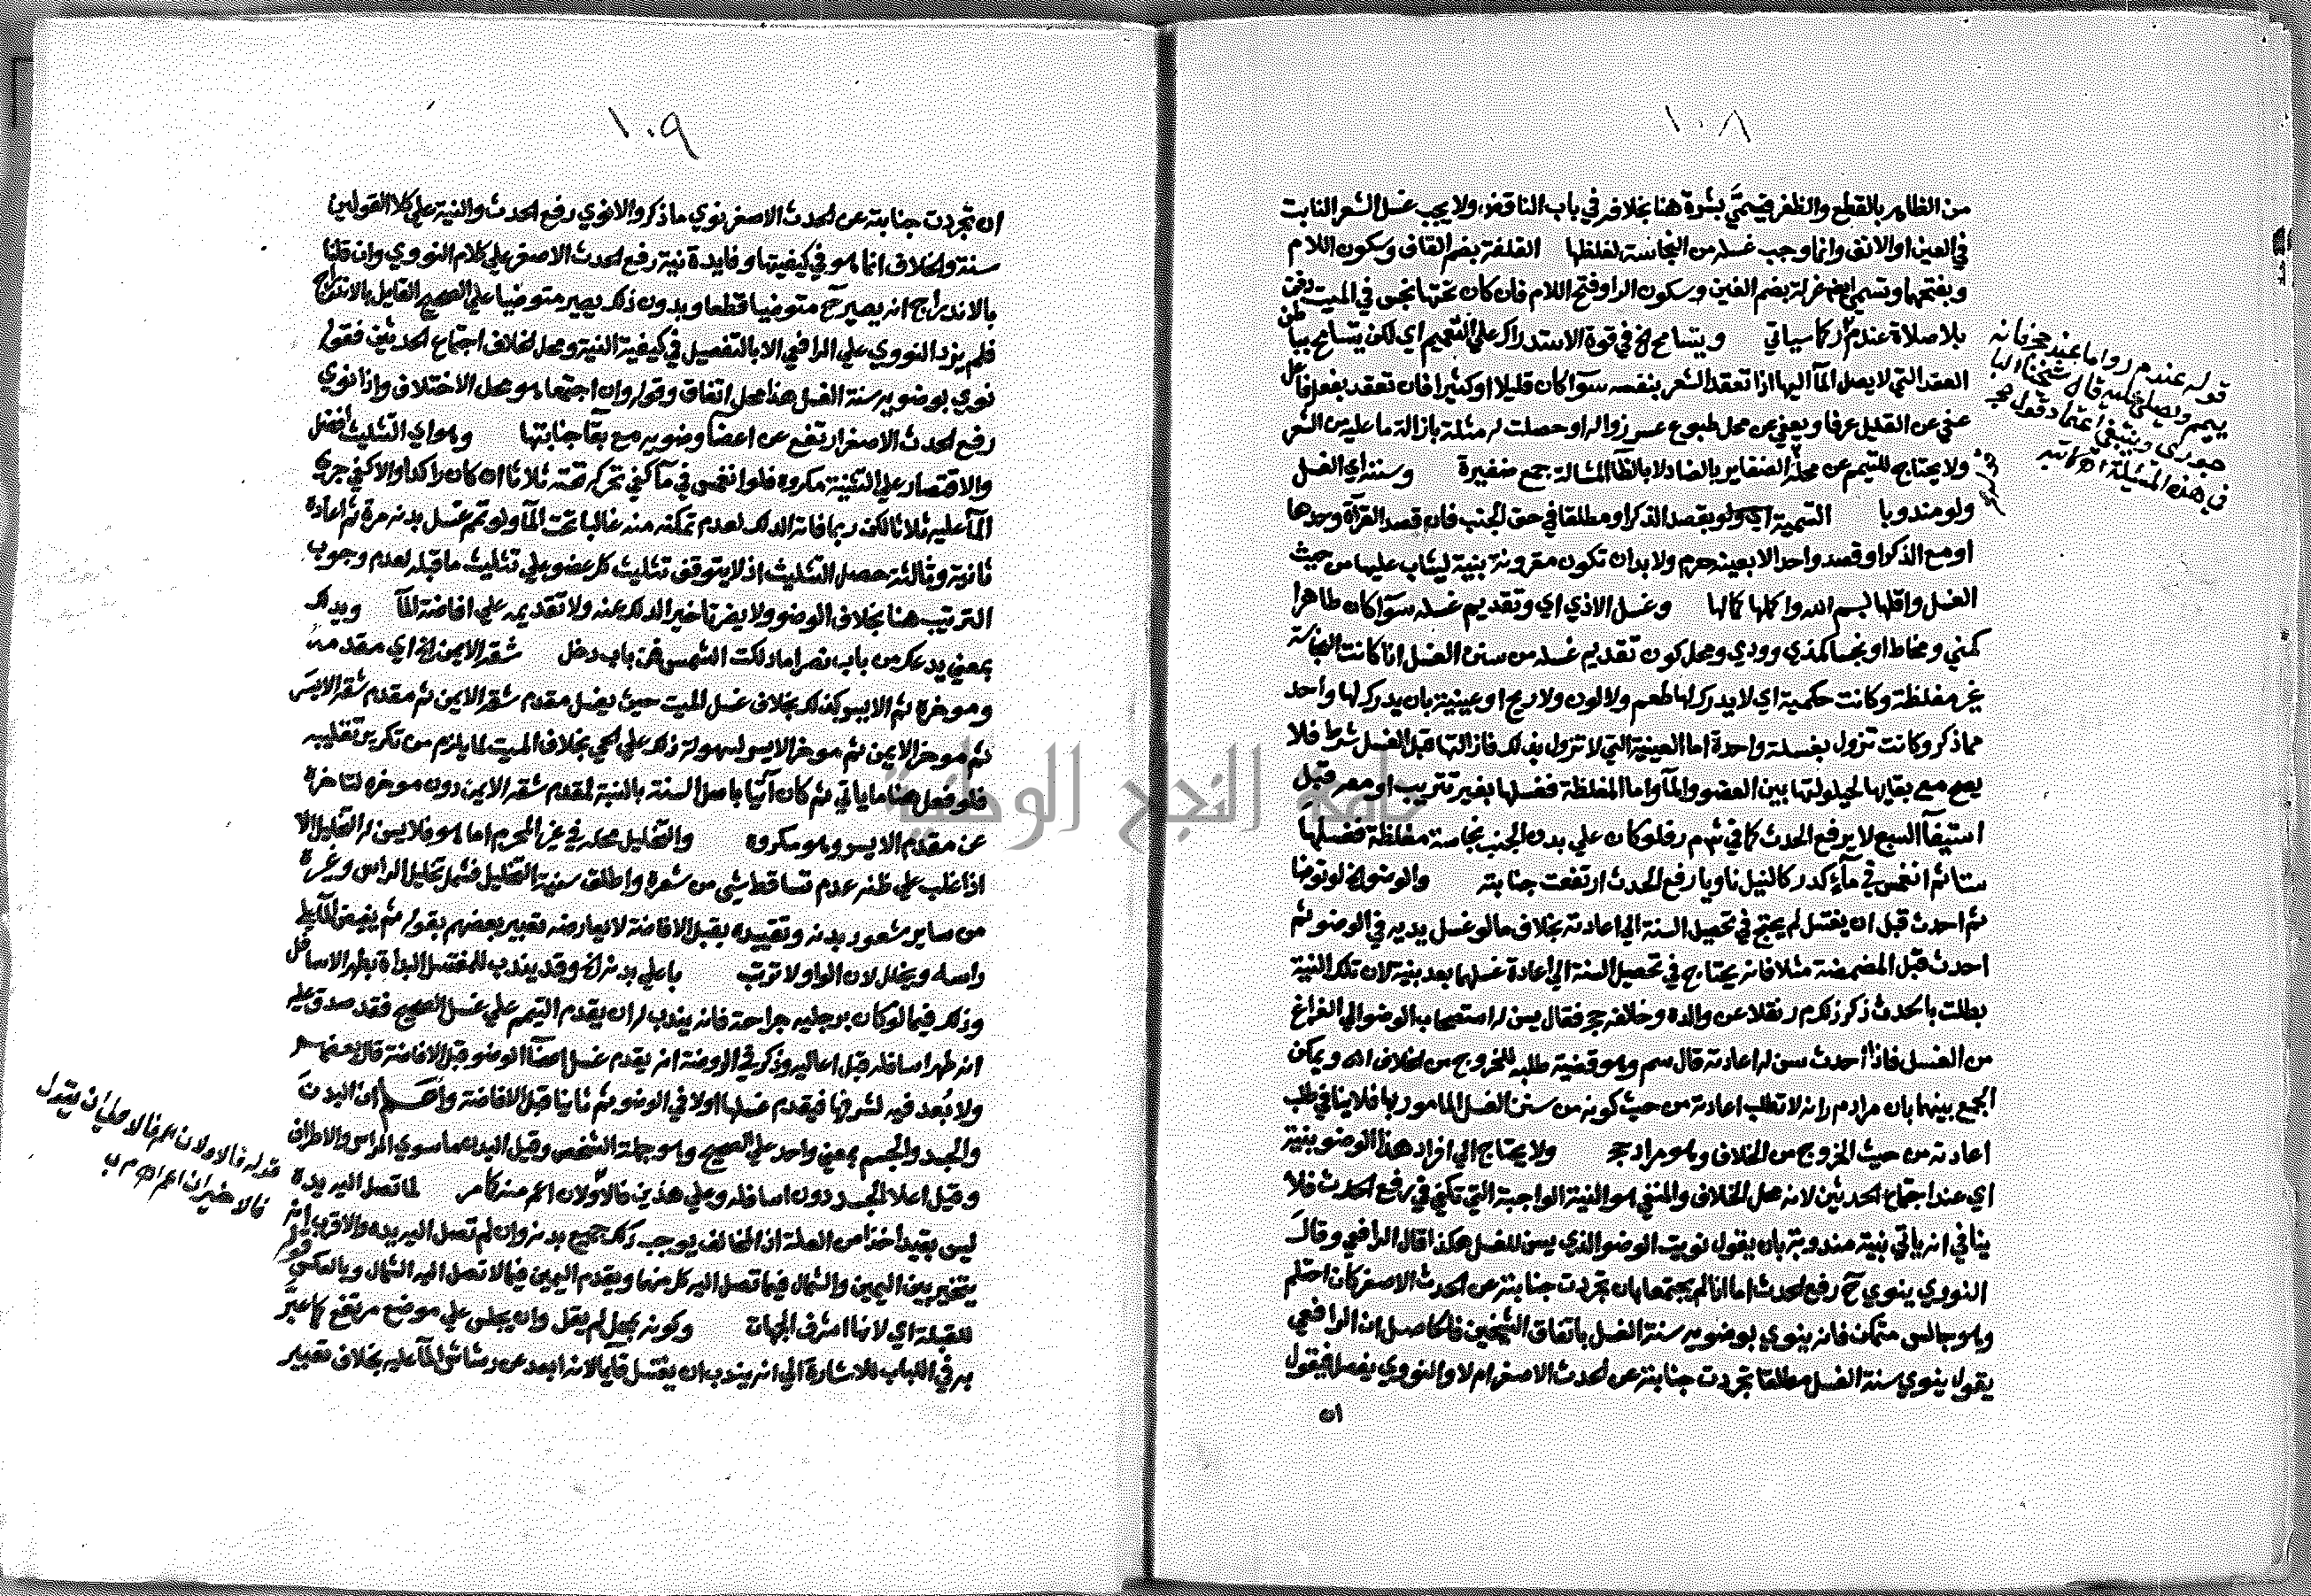 ١٠٨
من الظاهر بالقطع والظفر فيسمى بشرة هنا بخلافه في باب الناقض ولا يجب غسل الشعر النابت
في العين او الانف وانما وجب غسله من النجاسة لغلظها القلفة بضم القاف وسكون اللام
وبفتحها وتسمى ايضا غرلة بضم الغين وسكون الرا وفتح اللام فان كان تحتها نجس في الميت دفن
بلا صلاة عند م ر كما سياتي ويتسامح الخ في قوة الاستدراك على التعميم اي لكن يتسامح بباطن
العقد التي لا يصل المآ اليها اذا تعقد الشعر بنفسه سوآ كان قليلا او كثيرا فان تعقد بفعل فاعل
عفي عن القليل عرفا ويعفى عن محل طبوع عسر زواله او حصلت له مثلة بازالة ما عليه من الشعر
ولا يحتاج للتيمم عن محله الضفاير بالضاد لا بالظآ المشالة جمع ضفيرة وسننه اي الغسل
ولو مندوبا التسمية اي ولو بقصد الذكر او مطلقا في حق الجنب فان قصد القرآة وحدها
او مع الذكر او قصد واحدا لا بعينه حرم ولا بد ان تكون مقرونة بنية ليثاب عليها من حيث
الغسل واقلها بسم الله واكملها كمالها وغسل الاذي اي وتقديم غسله سوآ كان طاهرا
كمني ومخاط او نجسا كمذي وودي ومحل كون تقديم غسله من سنن الغسل اذا كانت النجاسة
غير مغلظة وكانت حكمية اي لا يدرك لها طعم ولا لون ولا ريح او عينية بان يدرك لها واحد
مما ذكر وكانت تزول بغسلة واحدة اما العينية التي لا تزول بذلك فازالتها قبل الغسل شرط فلا
يصح مع بقايها لحيلولتها بين العضو والمآ واما المغلظة فغسلها بغير تتريب او معه قبل
استيفآ السبع لا يرفع الحدث كما في شرح م ر فلو كان على بدن الجنب نجاسة مغلظة فغسلها
ستا ثم انغمس في مآء كدر كالنيل ناويا رفع الحدث ارتفعت جنابته والوضو الخ لو توضا
ثم احدث قبل ان يغتسل لم يحتج في تحصيل السنة الى اعادته بخلاف ما لو غسل يديه في الوضو ثم
احدث قبل المضمضة مثلا فانه يحتاج في تحصيل السنة الى اعادة غسلهما بعد بنية لان تلك النية
بطلت بالحدث ذكر ذلك م ر نقلا عن والده وخالفه حج فقال يسن له استصحاب الوضو الى الفراغ
من الغسل فاذا احدث سن له اعادته قال سم وهو قضية طلبه للخروج من الخلاف اه ويمكن
الجمع بينهما بان مراد م ر انه لا تطلب اعادته من حيث كونه من سنن الغسل المامور بها فلا ينافي طلب
اعادته من حيث الخروج من الخلاف وهو مراد حج ولا يحتاج الى افراد هذا الوضو بنية
اي عند اجتماع الحدثين لانه محل الخلاف والمنفي هو النية الواجبة التي تكفي في رفع الحدث فلا
ينافي انه ياتي بنية مندوبة بان يقول نويت الوضو الذي يسن للغسل هكذا قال الرافعي وقال
النووي ينوي ح رفع الحدث اما اذا لم يجتمعا بان تجردت جنابته عن الحدث الاصغر كان احتلم
وهو جالس متمكن فانه ينوي بوضويه سنة الغسل باتفاق الشيخين فالحاصل ان الرافعي
يقول ينوي سنة الغسل مطلقا تجردت جنابته عن الحدث الاصغر ام لا والنووي يفصل فيقول
ان
قوله عند م ر واما عند حج فانه
ييمم ويصلى عليه قال شيخنا البا
جوري وينبغي اعتماد قول حج
في هذه المسئلة اه
١٠٩
ان تجردت جنابته عن الحدث الاصغر نوي ما ذكر والا نوي رفع الحدث والنية على كلا القولين
سنة والخلاف انما هو في كيفيتها وفايدة نية رفع الحدث الاصغر على كلام النووي وان قلنا
بالاندراج انه يصير ح متوضيا قطعا وبدون ذلك يصير متوضيا على الصحيح القايل بالاندراج
فلم يزد النووي على الرافعي الا بالتفصيل في كيفية النية ومحل الخلاف اجتماع الحدثين فقوله
نوي بوضويه سنة الغسل هذا محل اتفاق وقوله وان اجتمعا هو محل الاختلاف واذا نوي
رفع الحدث الاصغر ارتفع عن اعضا وضويه مع بقآ جنابتها وهو اي التثليث افضل
والاقتصار على التثنية مكروه فلو انغمس في مآ كفى تحركه تحته ثلاثا ان كان راكدا والا كفى جري
المآ عليه ثلاثا لكن ربما فاته الدلك لعدم تمكنه منه غالبا تحت المآ ولو تمم غسل بدنه مرة ثم اعاده
ثانية وثالثة حصل التثليث اذ لا يتوقف تثليث كل عضو على تثليث ما قبله لعدم وجوب
الترتيب هنا بخلاف الوضو ولا يضر تاخير الدلك عنه ولا تقديمه على افاضة المآ ويدلك
بمعنى يدعك من باب نصر اما دلكت الشمس فمن باب دخل شقه الايمن الخ اي مقدمه
وموخره ثم الايسر كذلك بخلاف غسل الميت حيث يغسل مقدم شقه الايمن ثم مقدم شقه الايسر
ثم موخر الايمن ثم موخر الايسر لسهولة ذلك على الحي بخلاف الميت لما يلزم من تكرير تقليبه
فلو فعل هنا ما ياتي ثم كان آتيا باصل السنة بالنسبة لمقدم شقه الايمن دون موخره لتاخره
عن مقدم الايسر وهو مكروه والتخليل محله في غير المحرم اما هو فلا يسن له التخليل الا
اذا غلب على ظنه عدم تساقط شي من شعره واطلق سنية التخليل فشمل تخليل الراس وغيره
من ساير شعور بدنه وتقييده بقبل الافاضة لا يعارضه تعبير بعضهم بقوله ثم يفيض المآ على
راسه ويخلل لان الواو لا ترتب باعلى بدنه الخ وقد يندب للمغتسل البداة بطهر الاسافل
وذلك فيما لو كان برجليه جراحة فانه يندب له ان يقدم التيمم على غسل الصحيح فقد صدق عليه
انه طهر اسافله قبل اعاليه وذكر في الروضة انه يقدم غسل اعضآ الوضو قبل الافاضة قال بعضهم
ولا بُعد فيه لشرفها فيقدم غسلها اولا في الوضو ثم ثانيا قبل الافاضة واعلم ان البدن
والجسد والجسم بمعنى واحد على الصحيح وهو جملة الشخص وقيل البدن ما سوي الراس والاطراف
وقيل اعلا الجسد دون اسافله وعلى هذين فالاولان اعم منه كما مر لما تصل اليه يده
ليس بقيد اخذا من العلة اذ المخالف يوجب دلك جميع بدنه وان لم تصل اليه يده والاقرب انه
يتخير بين اليمين والشمال فيما تصل اليه كل منهما ويقدم اليمين فيما لا تصل اليه الشمال وبالعكس
للقبلة اي لانها اشرف الجهات وكونه بمحل لم يقل وان يجلس على موضع مرتفع كما عبر
به في اللباب للاشارة الى انه يندب ان يغتسل قايما لانه ابعد عن رشاش المآ عليه بخلاف تعبير
قوله فالاولان اعم فالاولى ان يقول
فالاخيران اعم اه
جامعة النجاح الوطنية